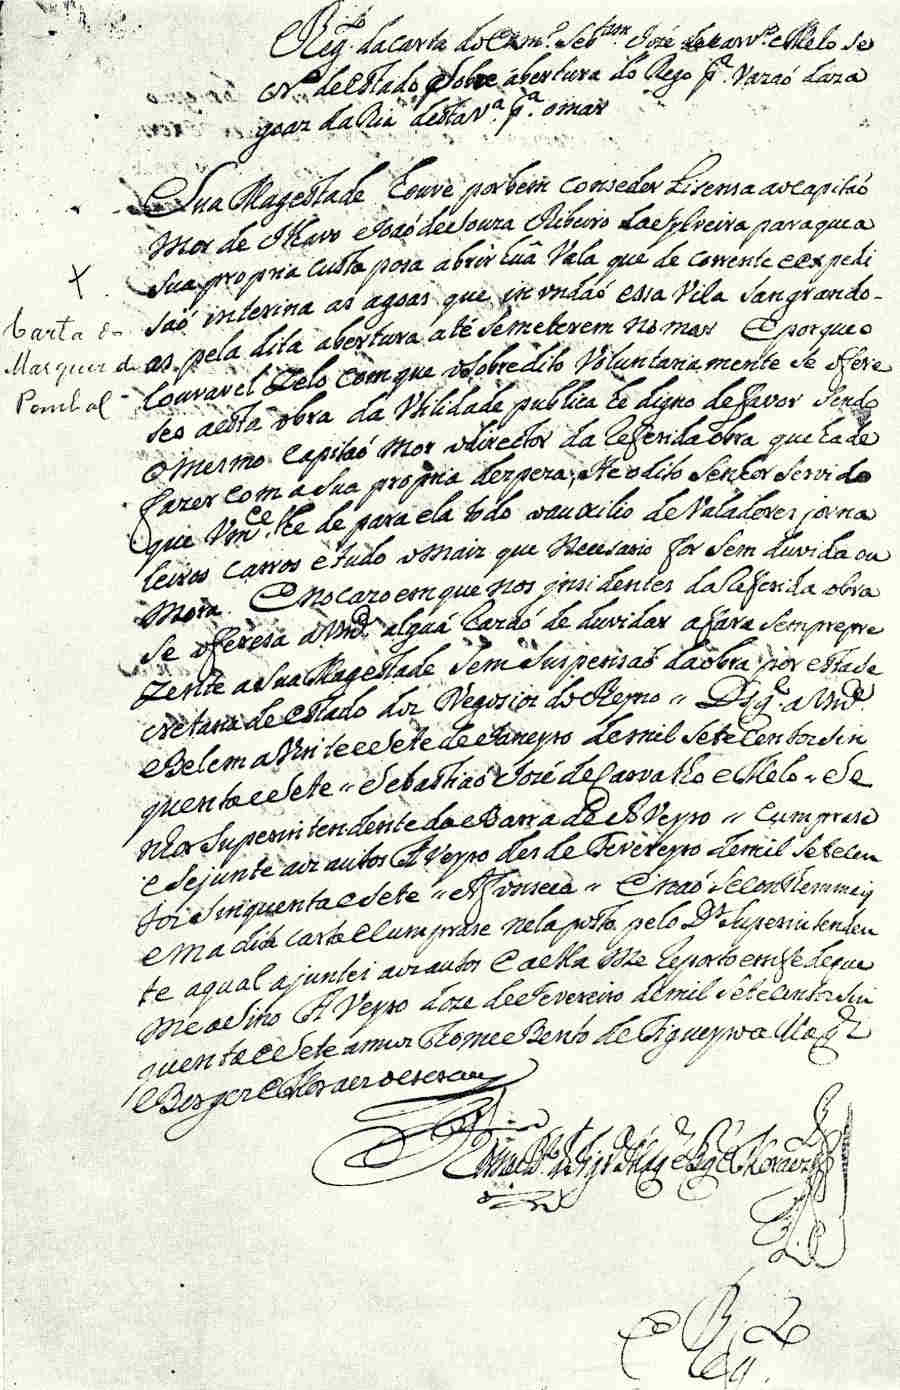 Reg.to da carta do Exm.º Sebtam José de Carv.º e Melo Se
cr.º de estado sobre abertura do Rego p.ª Vazaó das a
goas da Ria desta V.ª p.ª o mar
Sua Magestade houve por bem conseder Lisensa ao capitaó
Mor de Ilhavo e Joaó de Souza Ribeiro da Sylveira para que a
sua propria custa posa abrir huã Vala que de corrente e expedi
saó interina as agoas que inundaó essa Vila sangrando-
as pela dita abertura até se meterem no mar E porque o
Carta do
Marquez de
Pombal
louvavel Zelo com que o sobredito Voluntariamente se ofere
seo a esta obra da Utilidade publica he digno de favor sendo
o mesmo capitaó Mor o director da referida obra que ha de
fazer com a sua propria despeza, He o dito Senhor servido
que Vm.ce lhe de para ela todo o auxilio de Valadores jorna
leiros carros e tudo o mais que Necesario for sem duvida ou
Mora. E no cazo em que nos insidentes da referida obra
se oferesa a Vm.ce alguã razaó de duvidar a fara sempre pre
zente a Sua Magestade sem suspensaó da obra por esta Se
cretaria de estado dos Negosios do Reyno " D.s g.e a Vm.ce
Belem a Vinte e sete de Janeyro de mil sete centos sin
quenta e sete " Sebastiaó José de Carvalho e Melo " Se
nhor Superintendente da Barra de Aveyro " Cumprase
e se junte aos autos Aveyro des de Fevereyro de mil setecen
tos sinquenta e sete " Afonseca " E naó se contem mais
em a dita carta e cumprase nela posto pelo D.r Superintenden
te a qual ajuntei aos autos e a ella me reporto em fe de que
me asino Aveyro doze de Fevereiro de mil setecentos sin
quenta e sete annos Thome Bento de Figueyroa